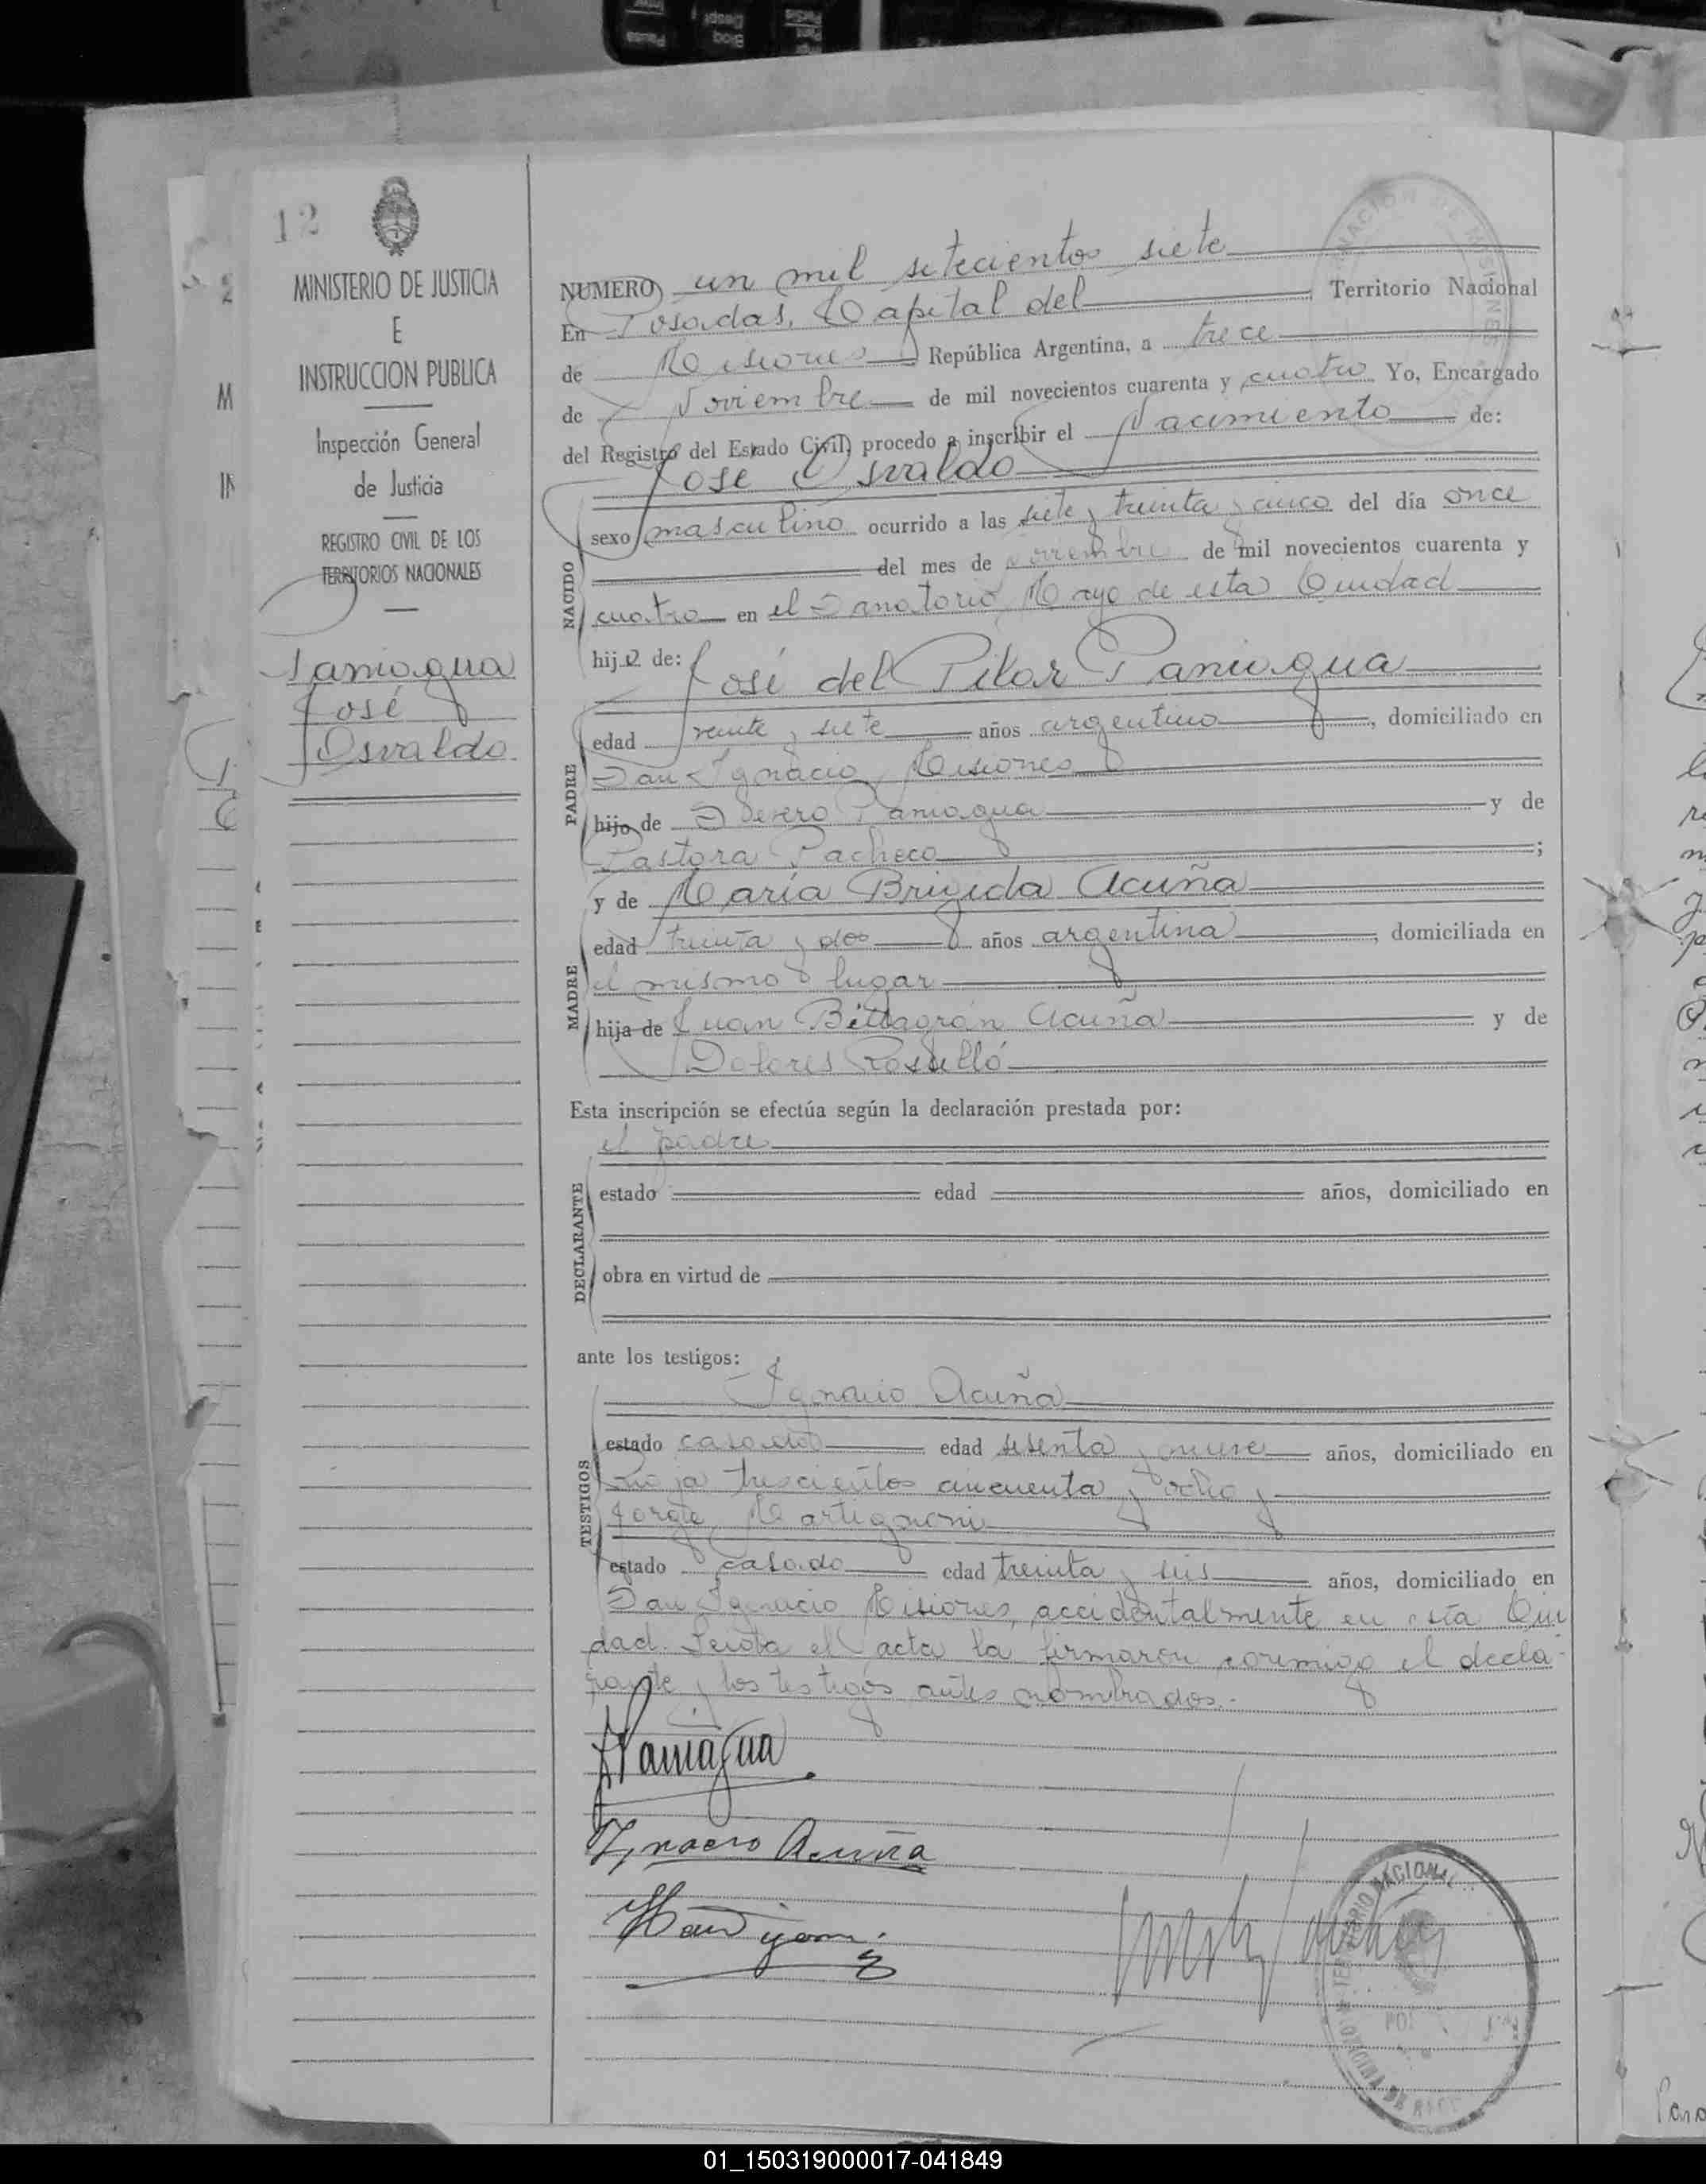 12
MINISTERIO DE JUSTICIA
E
INSTRUCCION PUBLICA
Inspección General
de Justicia
REGISTRO CIVIL DE LOS
TERRITORIOS NACIONALES
Paniagua
José
Osvaldo.
NUMERO un mil setecientos siete
En Posadas, Capital del Territorio Nacional
de Misiones República Argentina, a trece
de Noviembre de mil novecientos cuarenta y cuatro Yo, Encargado
del Registro del Estado Civil, procedo a inscribir el Nacimiento de:
José Osvaldo
NACIDO
sexo masculino ocurrido a las siete y treinta y cinco del día once
del mes de noviembre de mil novecientos cuarenta y
cuatro en el Sanatorio Mayo de esta Ciudad
hijo de: José del Pilar Paniagua
PADRE
edad veinte y siete años argentino, domiciliado en
San Ignacio, Misiones
hijo de Severo Paniagua y de
Pastora Pacheco;
y de María Brigida Acuña
MADRE
edad treinta y dos años argentina, domiciliada en
el mismo lugar
hija de Juan Acuña y de
Dolores Rosselló
Esta inscripción se efectúa según la declaración prestada por:
el padre
DECLARANTE
estado edad años, domiciliado en
obra en virtud de
ante los testigos:
Ignacio Acuña
TESTIGOS
estado casado edad sesenta y nueve años, domiciliado en
Rioja trescientos cincuenta y ocho y
Jorge Martignoni
estado casado edad treinta y seis años, domiciliado en
San Ignacio Misiones, accidentalmente en esta Ciu
dad. Leida el acta la firmaron conmigo el decla-
rante y los testigos antes nombrados.-
JPaniagua
Ignacio Acuña
TERRITORIO NACIONAL
01_150319000017-041849